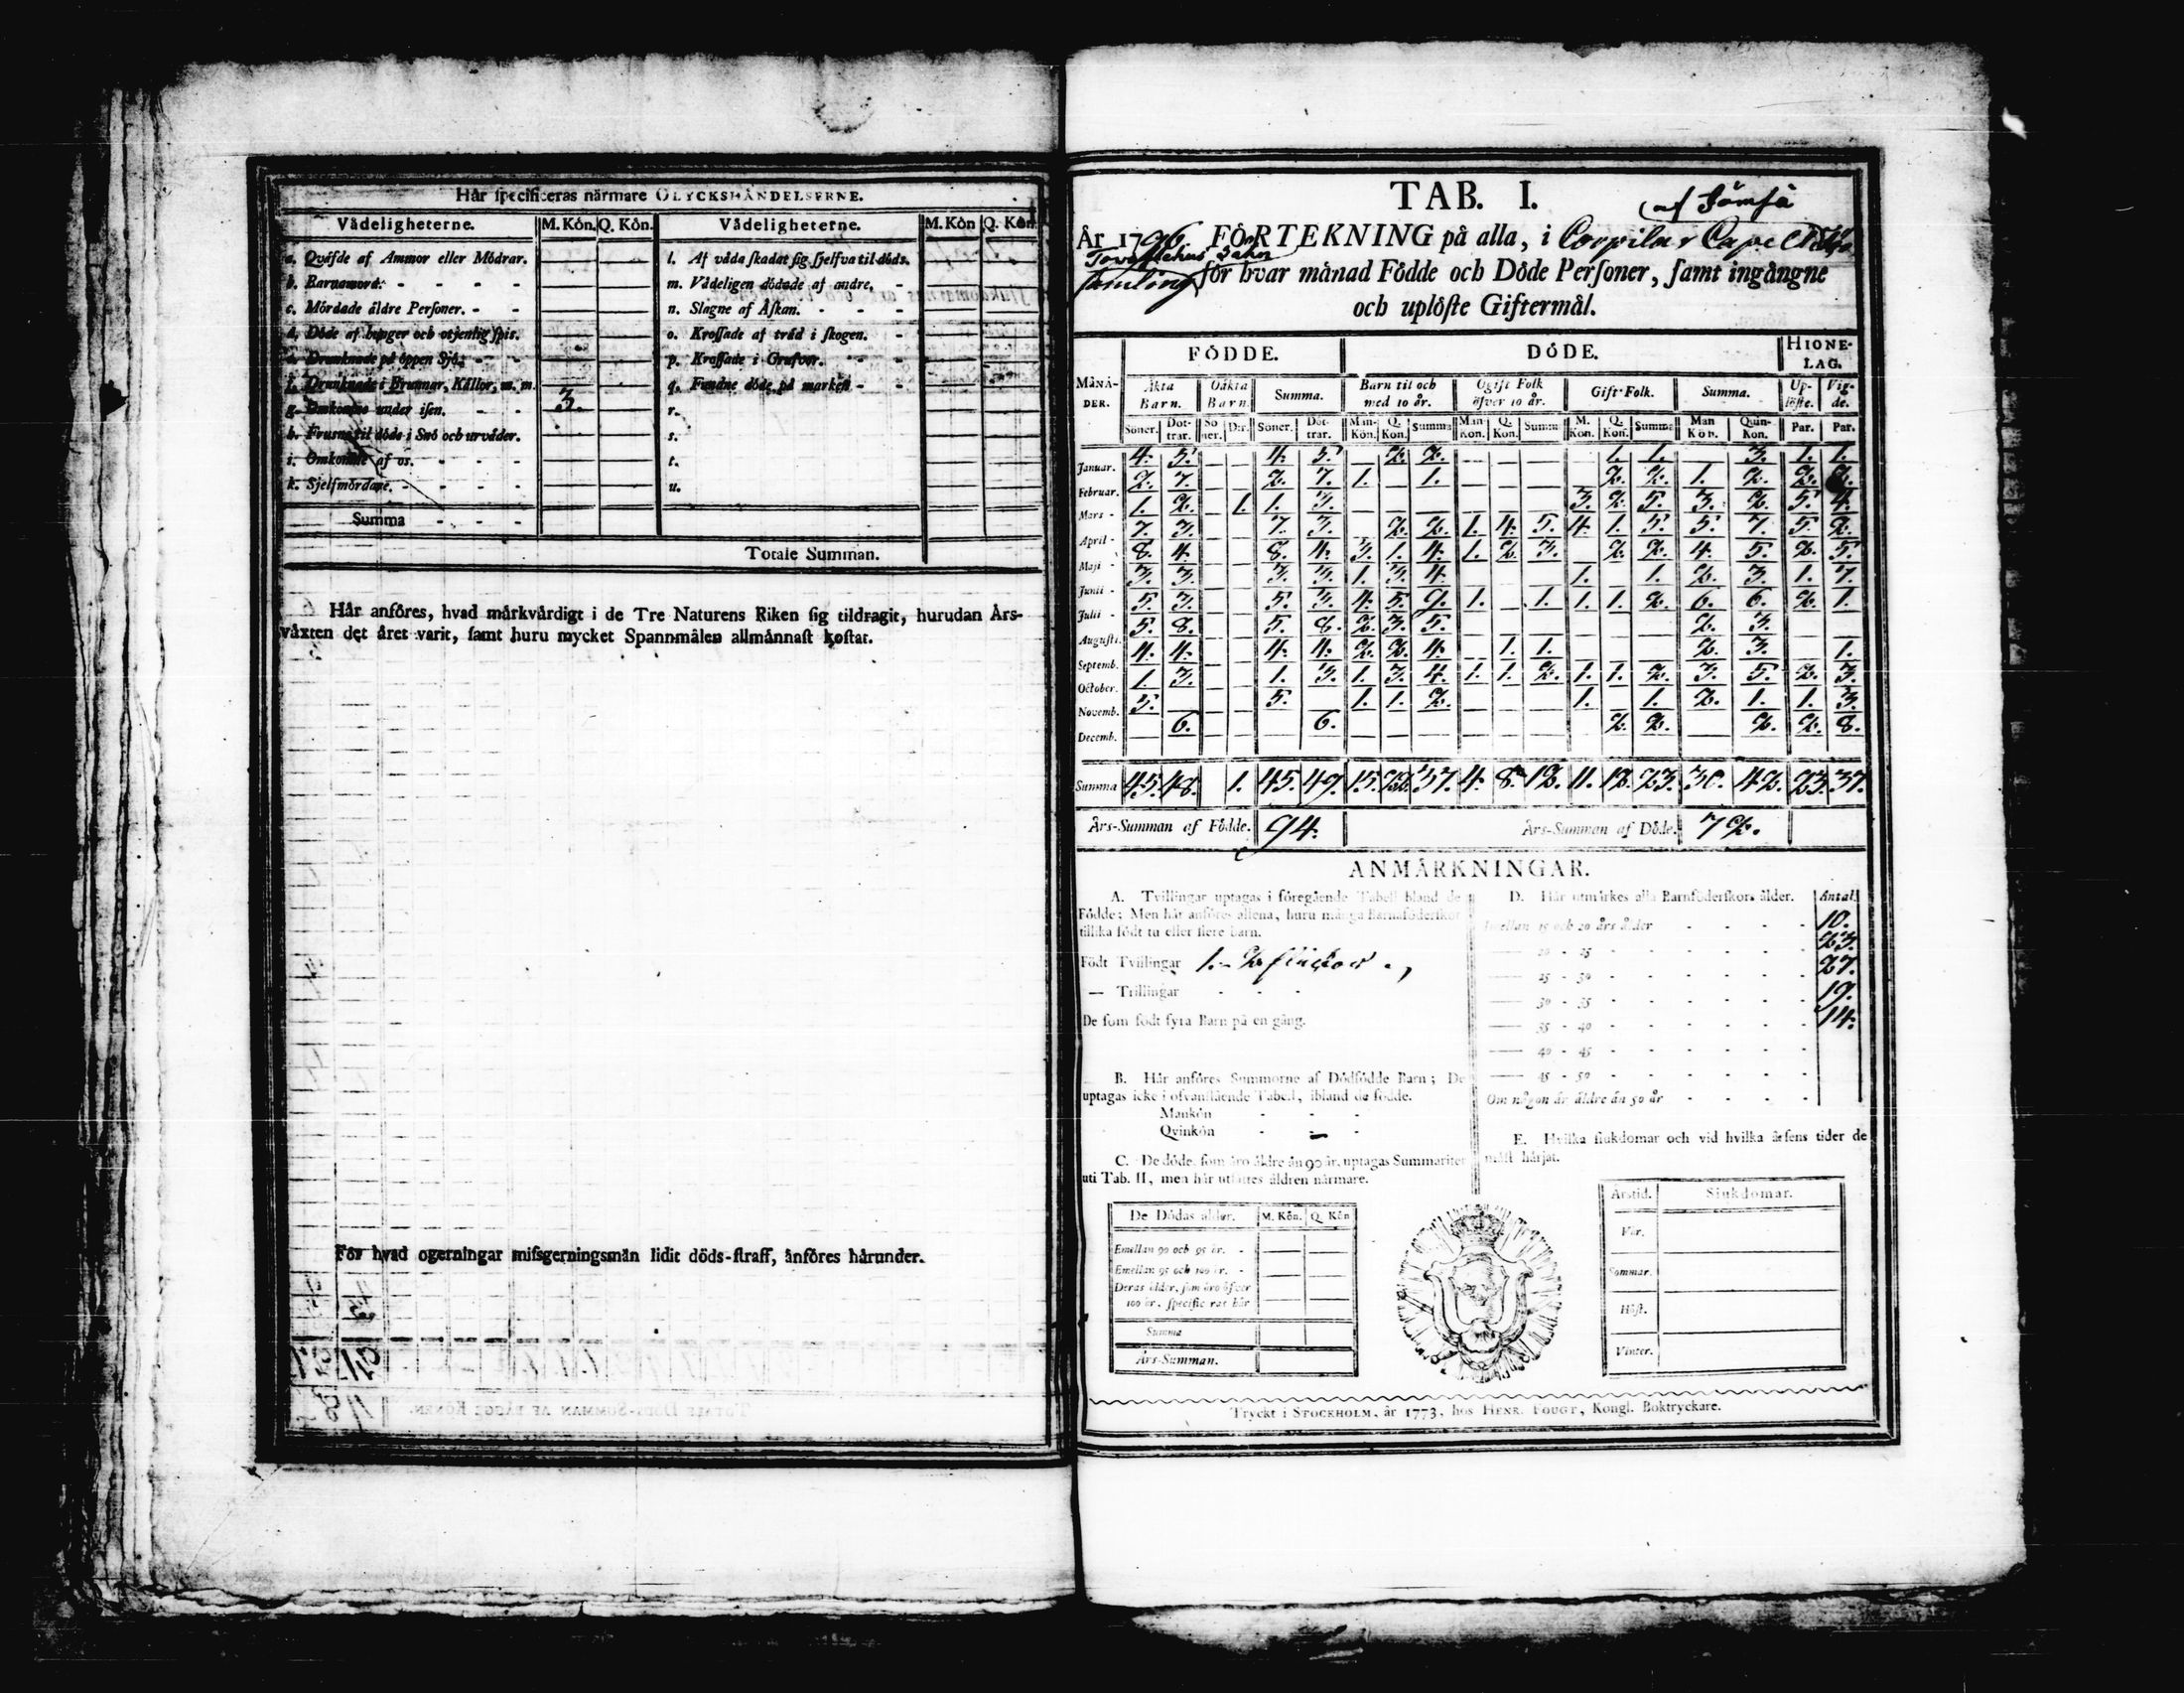 Här specificeras närmare OLYCKSHÄNDELSERNE.
Vådeligheterne. M. Kön. Q. Kön. Vådeligheterne. M. Kön Q. Kön
a. Qväfde af Ammor eller Mödrar. l. Af våda skadat sig sjelfva til döds.
b. Barnamord. - - - - m. Vådeligen dödade af andre. -
c. Mördade äldre Personer. - - n. Slagne af Åskan. - - -
d. Döde af hunger och otjenlig spis. o. Krossade af träd i skogen. -
e. Drunknade på öppen Sjö. - - p. Krossade i Grufvor. - -
f. Drunknade i Brunnar, Källor, m. m. q. Fundne döde på marken - -
g. Omkomne under isen. - - 3. r.
h. Frusne til döds i Snö och urväder. s.
i. Omkomne af os. - - - t.
k. Sjelfmördare. - - - - u.
Summa - - -
Totale Summan.
Här anföres, hvad märkvärdigt i de Tre Naturens Riken sig tildragit, hurudan Års-
växten det året varit, samt huru mycket Spannmålen allmännast kostat.
För hvad ogerningar missgerningsmän lidit döds-straff, anföres härunder.
TAB. I.
af Jämsä
År 1796 FÖRTEKNING på alla, i Corpilax Capell
för hvar månad Födde och Döde Personer, samt ingångne
och uplöste Giftermål.
MÅNADER. FÖDDE. DÖDE. HIONELAG.
Äkta Barn. Oäkta Barn. Summa. Barn til och med 10 år. Ogift Folk öfver 10 år. Gift Folk. Summa. Uplöste. Vigde.
Söner. Döttrar. Söner. Dtr. Söner. Döttrar. Man-Kön. Q. Kön. Summa Man Kön. Q. Kon. Summ M. Kon. Q. Kon. Summa Man Kön. Quin-Kon. Par. Par.
Januar. 4. 5. — — 4. 5. — 2. 2. — — — — 1. 1. — 3. 1. 1.
Februar. 2. 7. — — 2. 7. 1. — 1. — — — — 2. 2. 1. 2. 2.
Mars - 1. 2. — 1. 1. 3. — — — — — — 3. 2. 5. 3. 2. 5. 4.
April - 7. 3. — — 7. 3. — 2. 2. 1. 4. 5. 4. 1. 5. 5. 7. 5 2.
Maji - 8. 4. — — 8. 4. 3. 1. 4. 1. 2. 3. — 2. 2. 4. 5. 2. 5.
Junii - 3. 3. — — 3. 3. 1. 3. 4. — — — 1. — 1. 2. 3. 1. 7.
Julii - 5. 3. — — 5. 3. 4. 5. 9. 1. — 1. 1. 1. 2. 6. 6. 2. 1.
Augusti. 5. 8. — — 5. 8. 2. 3. 5. — — — — — — 2. 3. — —
Septemb. 4. 4. — — 4. 4. 2. 2. 4. — 1. 1. — — — 2. 3. — 1.
October. 1. 3. — — 1. 3. 1. 3. 4. 1. 1. 2. 1. 1. 2. 3. 5. 2. 3.
Novemb. 5. — — — 5. — 1. 1. 2. — — — 1. — 1. 2. 1. 1. 3.
Decemb. — 6. — — — 6. — — — — — — — 2. 2. — 2. 2. 8.
Summa 45. 48. 1. 45. 49. 15. 22. 37. 4. 8. 12. 11. 12. 23. 30. 42. 23. 37.
Års-Summan af Födde. 94. Års-Summan af Döde. 72.
ANMÄRKNINGAR.
A. Tvillingar uptagas i föregående Tabell bland de
Födde; Men här anföres allena, huru många Barnaföderskor
tillika födt tu eller flere barn.
Födt Tvillingar 1.
— Trillingar - - -
De som födt fyra Barn på en gång.
B. Här anföres Summorne af Dödfödde Barn; De
uptagas icke i ofvanstående Tabell, ibland de födde.
Mankön - -
Qvinkön - —
C. De döde, som äro äldre än 90 år, uptagas Summariter
uti Tab. II, men här utsättes åldren närmare.
De Dödas ålder. M. Kön. Q. Kön
Emellan 90 och 95 år. -
Emellan 95 och 100 år. -
Deras ålder, som äro öfver
100 år, specificeras här
Summa
Års-Summan.
D. Här utmärkes alla Barnföderskors ålder. Antal
Emellan 15 och 20 års ålder - - - - 10.
— 20 - 25 - - - - - - 23.
— 25 - 30 - - - - - - 27.
— 30 - 35 - - - - - - 19.
— 35 - 40 - - - - - - 14.
— 40 - 45 - - - - - -
— 45 - 50 - - - - - -
Om någon är äldre än 50 år - - - -
E. Hvilka siukdomar och vid hvilka årsens tider de
mäst härjat.
Årstid. Siukdomar.
Vår.
Sommar.
Höst.
Vinter.
Tryckt i STOCKHOLM, år 1773, hos HENR. FOUGT, Kongl. Boktryckare.